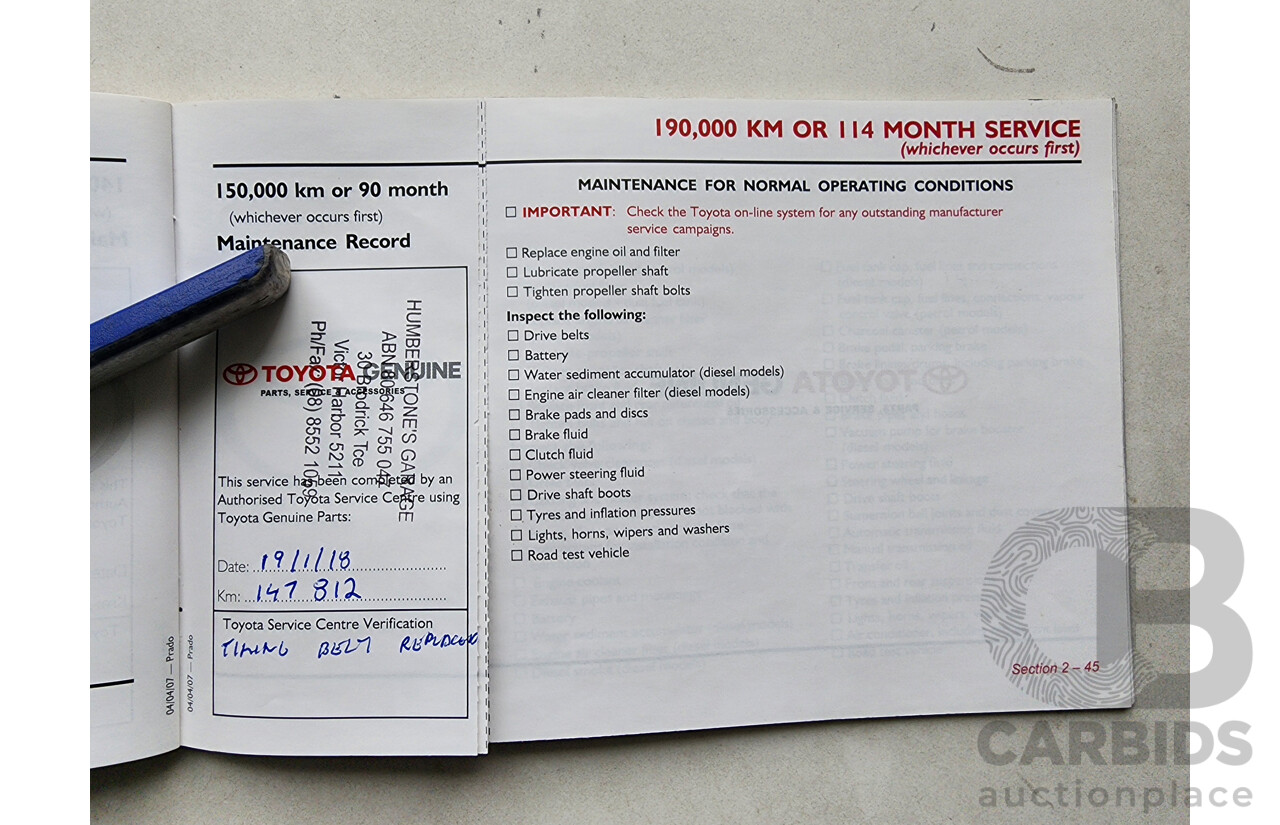 150,000 km or 90 month
(whichever occurs first)
Maintenance Record
HUMBERSTONE'S GARAGE
ABN 80 646 755 047
30 Brodrick Tce
Victor Harbor 5211
Ph/Fax (08) 8552 1059
TOYOTA GENUINE
PARTS, SERVICE & ACCESSORIES
This service has been completed by an
Authorised Toyota Service Centre using
Toyota Genuine Parts:
Date: 19/1/18
Km: 147 812
Toyota Service Centre Verification
TIMING BELT REPLACED
04/04/07 — Prado
04/04/07 — Prado
190,000 KM OR 114 MONTH SERVICE
(whichever occurs first)
MAINTENANCE FOR NORMAL OPERATING CONDITIONS
IMPORTANT: Check the Toyota on-line system for any outstanding manufacturer
service campaigns.
Replace engine oil and filter
Lubricate propeller shaft
Tighten propeller shaft bolts
Inspect the following:
Drive belts
Battery
Water sediment accumulator (diesel models)
Engine air cleaner filter (diesel models)
Brake pads and discs
Brake fluid
Clutch fluid
Power steering fluid
Drive shaft boots
Tyres and inflation pressures
Lights, horns, wipers and washers
Road test vehicle
Section 2 – 45
CB
CARBIDS
auctionplace